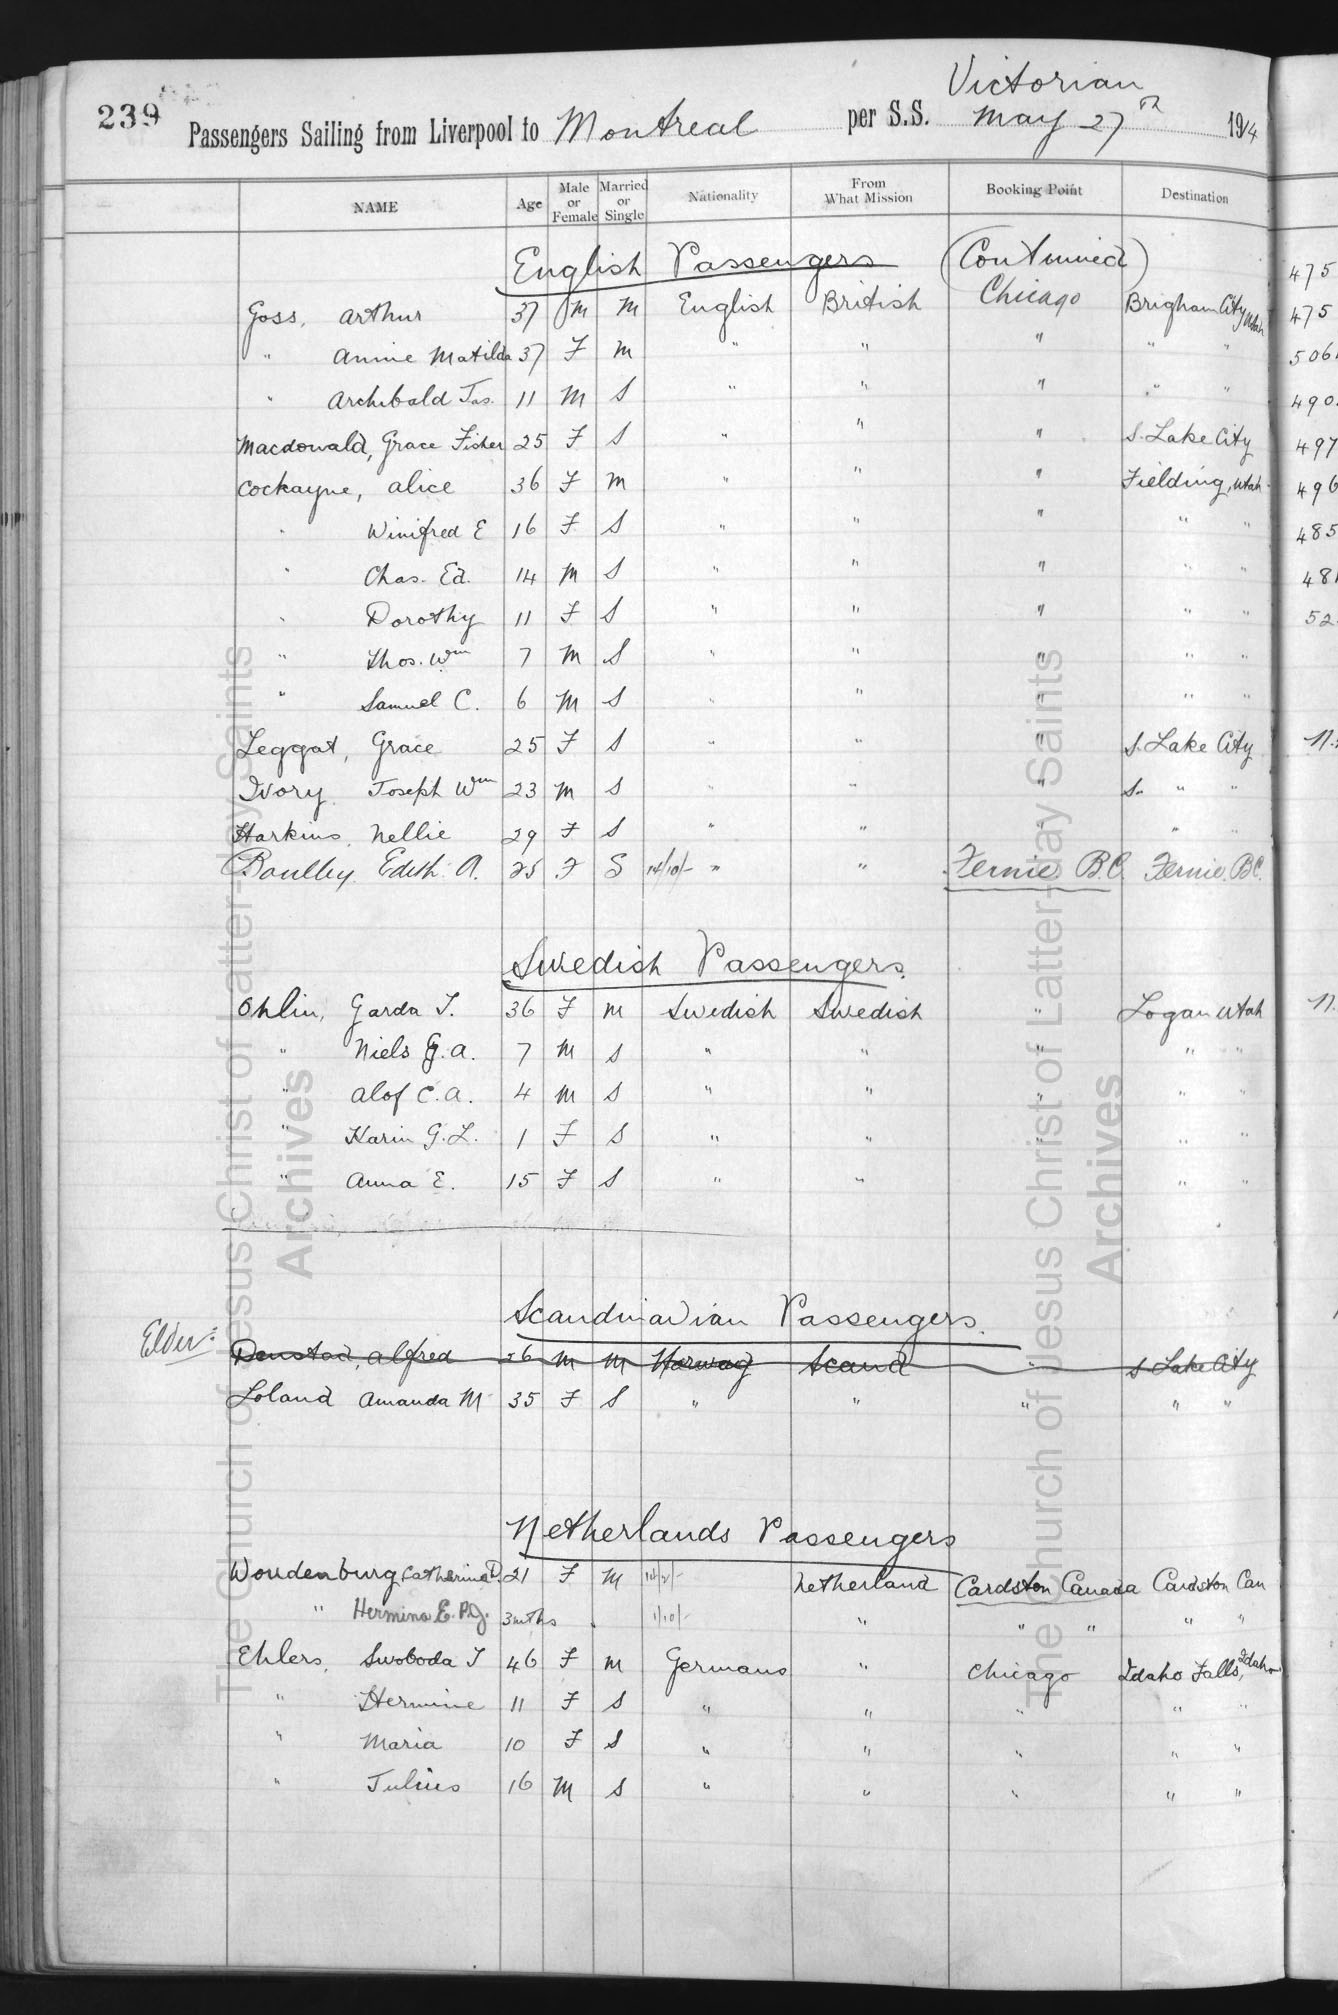 239
Victorian
Passengers Sailing from Liverpool to Montreal per S.S. May 27th 1914
NAME Age Male or Female Married or Single Nationality From What Mission Booking Point Destination
English Passengers (Continued)
Goss, Arthur 37 M M English British Chicago Brigham City Utah
" Annie Matilda 37 F M " " " " "
" Archibald Jas. 11 M S " " " " "
Macdonald, Grace Fisher 25 F S " " " S. Lake City
Cockayne, Alice 36 F M " " " Fielding, Utah
" Winifred E 16 F S " " " " "
" Chas. Ed. 14 M S " " " " "
" Dorothy 11 F S " " " " "
" Thos. Wm 7 M S " " " " "
" Samuel C. 6 M S " " " " "
Leggat, Grace 25 F S " " " S. Lake City
Ivory Joseph Wm 23 M S " " " S. " "
Harkins, Nellie 29 F S " " " " "
Edith A. 25 F S 14/10/- " " Fernie B.C. Fernie. B.C.
Swedish Passengers.
Ohlin, Garda T. 36 F M Swedish Swedish " Logan Utah
" Niels G. A. 7 M S " " " " "
" Alof C. A. 4 M S " " " " "
" Karin G. L. 1 F S " " " " "
" Anna E. 15 F S " " " "
Scandinavian Passengers.
Elder: Denstad, Alfred 26 M M Norway Scand " S. Lake City
Loland Amanda M 35 F S " " " " "
Netherlands Passengers
Woudenburg, Catherina D. 21 F M Netherland Cardston Canada Cardston Can
" Hermina E. P. J. 3 mths 1/10/- " " " " "
Ehlers, Swoboda T 46 F M Germans " Chicago Idaho Falls, Idaho
" Hermine 11 F S " " " " "
" Maria 10 F S " " " " "
" Julius 16 M S " " " " "
475
475
506
490
497
496
485
481
52
N.
N.
The Church of Jesus Christ of Latter-day Saints
Archives
The Church of Jesus Christ of Latter-day Saints
Archives